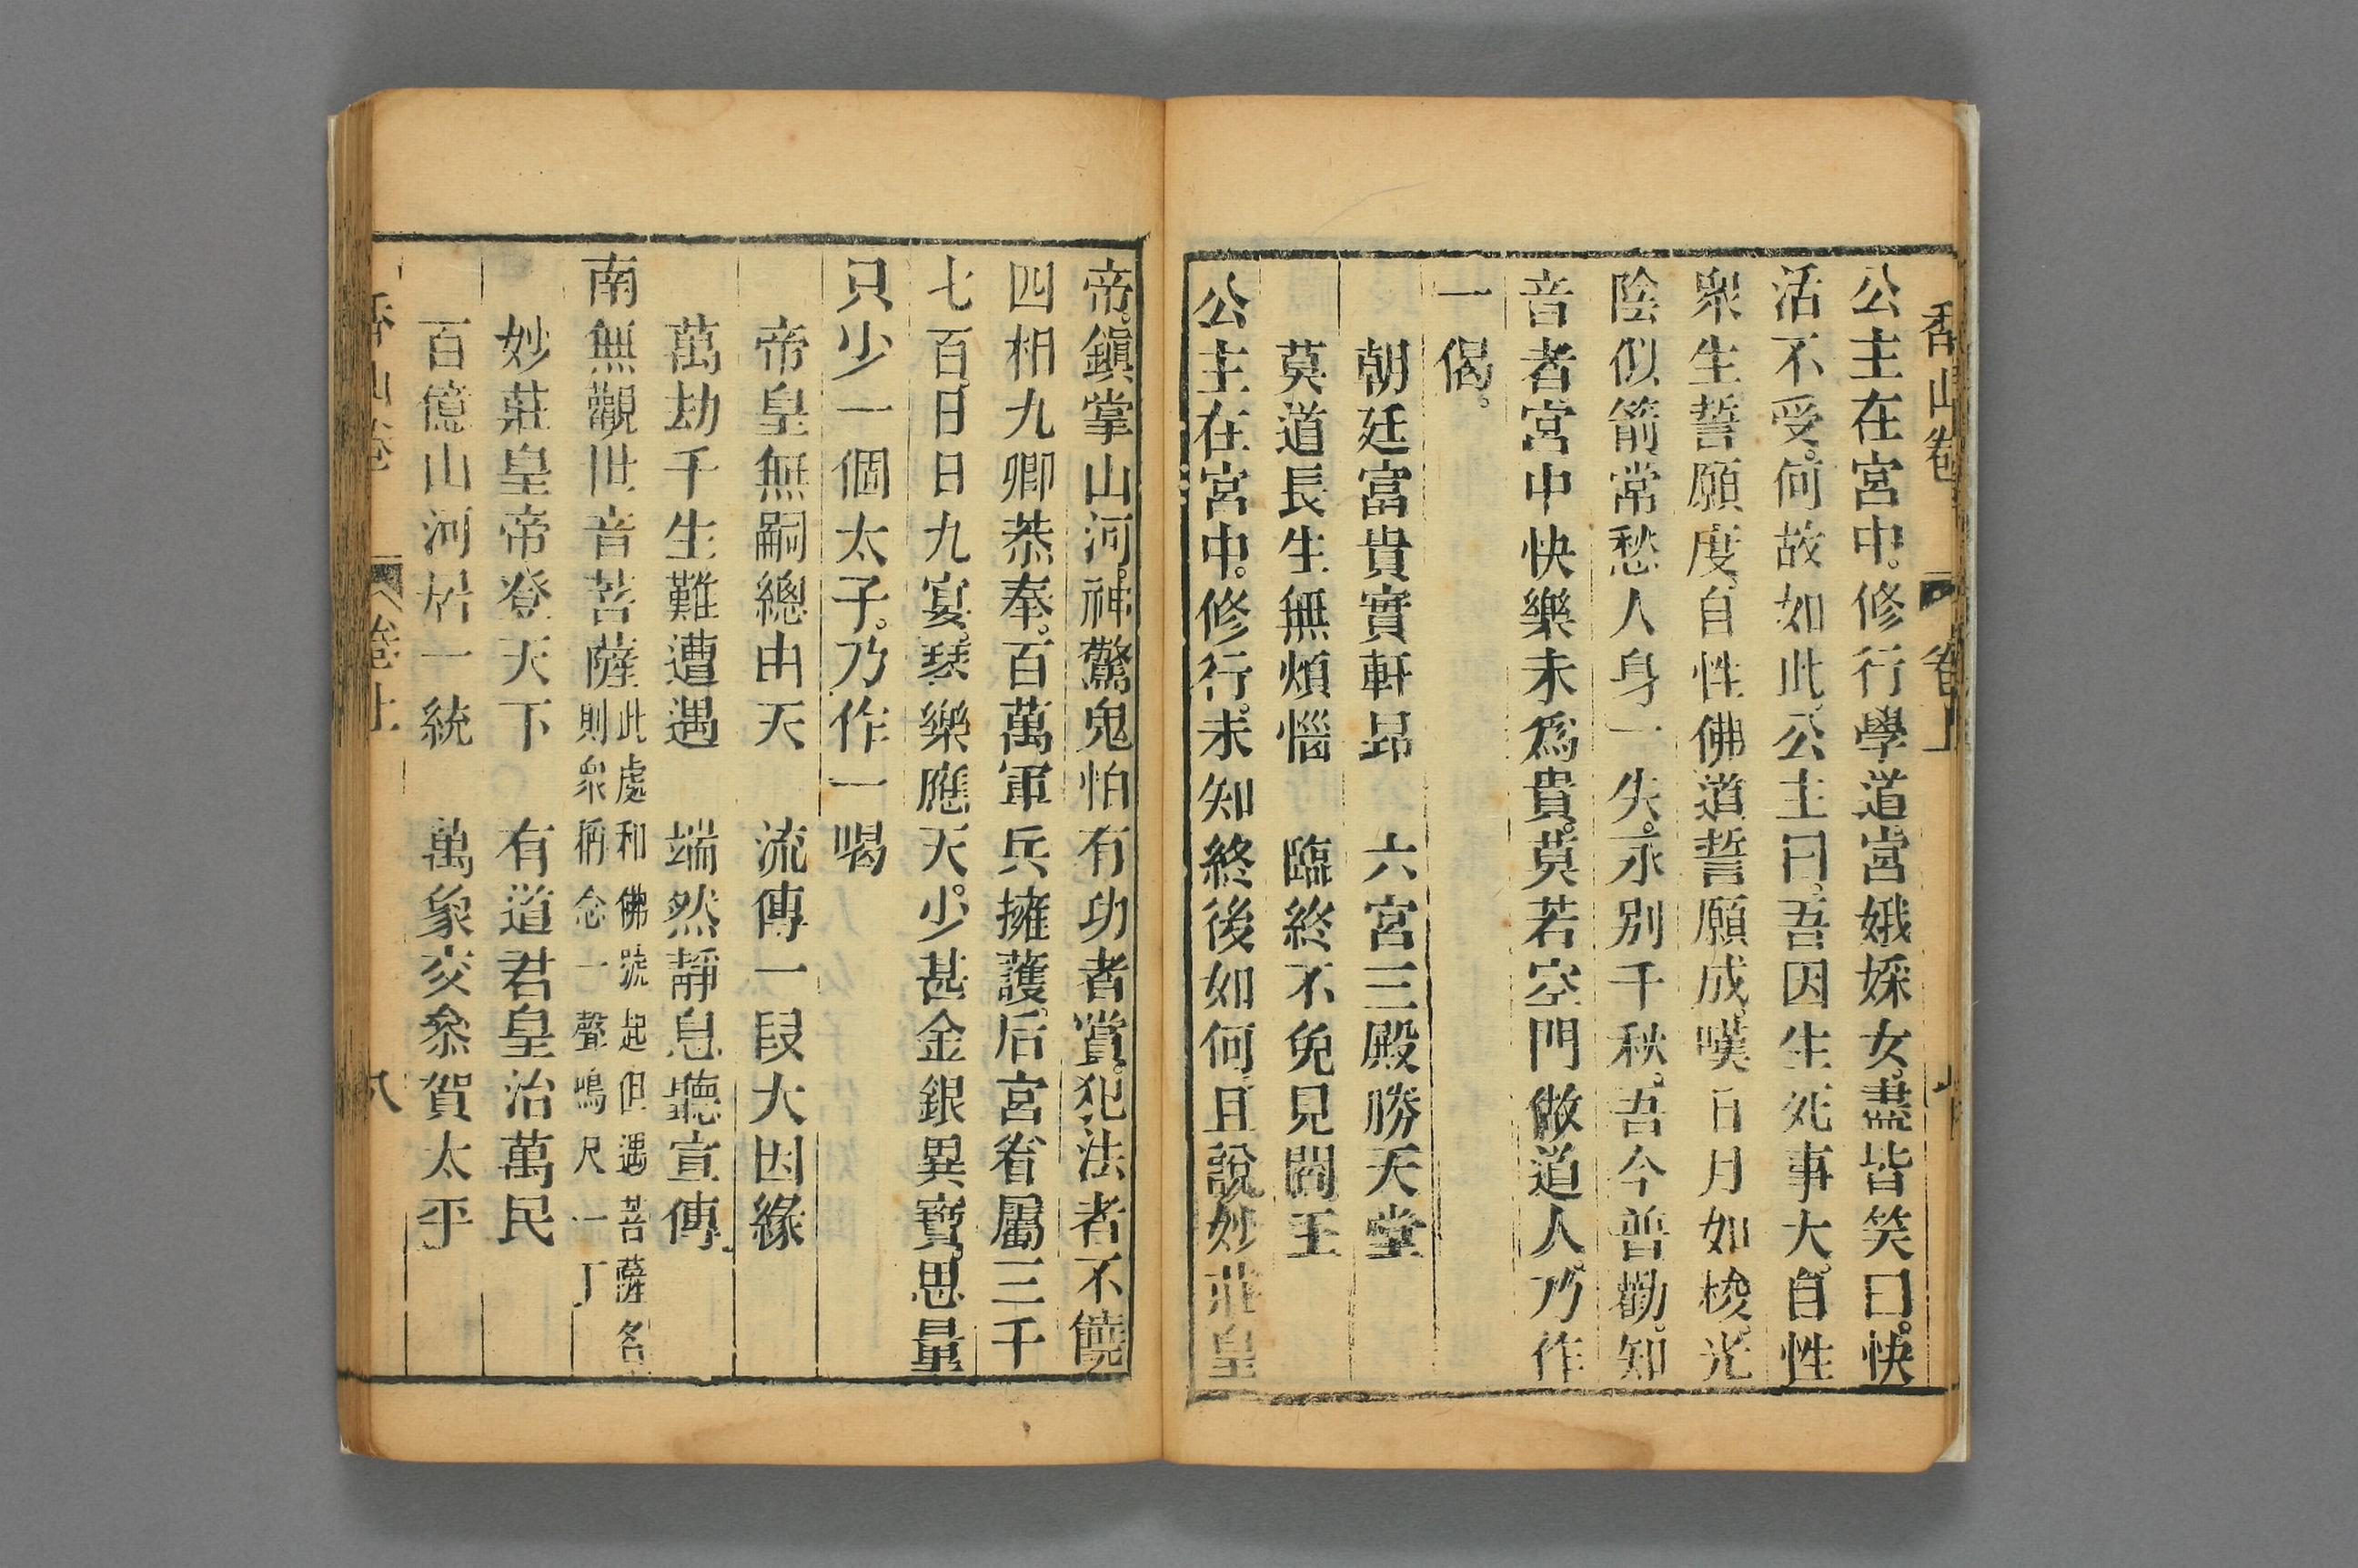 香山卷 卷上
公主在宮中。修行學道。宮娥婇女。盡皆笑曰。快
活不受。何故如此。公主曰。吾因生死事大。自性
衆生誓願度。自性佛道誓願成。嘆日月如梭。光
陰似箭常愁人身一失。永别千秋。吾今普勸。知
音者宮中快樂未爲貴。莫若空門做道人。乃作
一偈。
朝廷富貴實軒昂　六宮三殿勝天堂
莫道長生無煩惱　臨終不免見閻王
公主在宮中。修行。未知終後如何。且說妙莊皇
帝。鎮掌山河。神驚鬼怕有功者賞。犯法者不饒
四相九卿恭奉。百萬軍兵擁護。后宮眷屬三千
七百。日日九宴。琴樂應天。少甚金銀異寶。思量
只少一個太子。乃作一喝
帝皇無嗣總由天　流傳一段大因緣
萬劫千生難遭遇　端然靜息聽宣傳
南無觀世音菩薩此處和佛號起但遇菩薩名
則衆稱念一聲鳴尺一丁
妙莊皇帝登天下　有道君皇治萬民
百億山河居一統　萬象交叅賀太平
香山卷 卷上 八